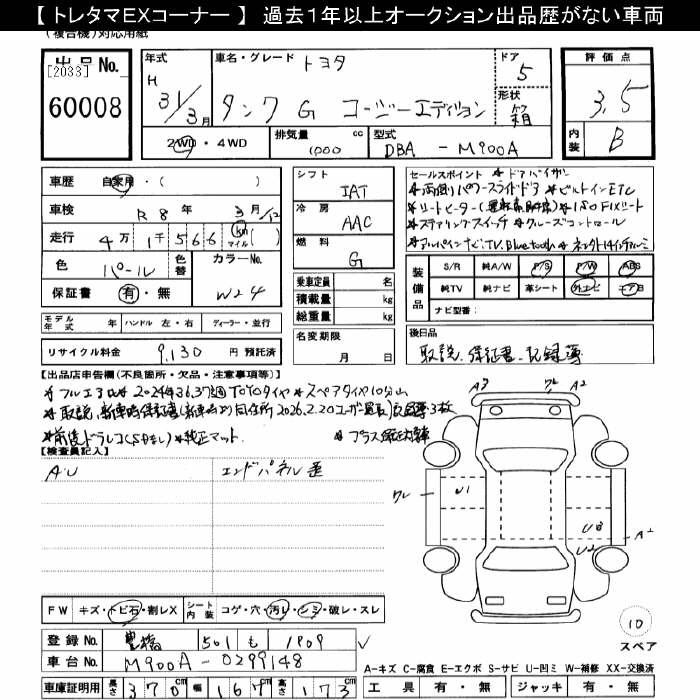 【 トレタマEXコーナー 】 過去1年以上オークション出品歴がない車両
(複合機)対応用紙
出品No.
[2033]
60008
年式
H
31/3月
車名・グレード
トヨタ
タンク G コージーエディション
ドア
5
形状
箱
評価点
3.5
内装
B
2WD・4WD
排気量
1000
cc
型式
DBA - M900A
車歴 自家用・( )
車検 R 8年 3月/12
走行 4万1千566 km マイル ( )
色 パール
色替
カラーNo.
W24
保証書 有・無
シフト
IAT
冷房
AAC
燃料
G
乗車定員 名
積載量 kg
総重量 kg
セールスポイント * ドアバイザー
* 両側パワースライドドア * ビルトインETC
* シートヒーター(運転席助手席) * ISO FIXシート
* ステアリングスイッチ * クルーズコントロール
* アルパインナビ、TV、Bluetooth
装備品
S/R 純A/W P/S P/W ABS
純TV 純ナビ 革シート 外エビ エアB
ナビ型番:
モデル年式 年
ハンドル 左・右
ディーラー・並行
リサイクル料金 9,130 円 預託済
名変期限
月 日
後日品
取説、保証書、記録簿
【出品店申告欄(不良箇所・欠品・注意事項等)】
* フルエアロ * 2024年36,37週TOYOタイヤ * スペアタイヤ10分山
* 取説、新車時保証書
* 前後ドラレコ(SDなし) * 純正マット
【検査員記入】
A・U
エンドパネル歪
A3
ワレ
A2
ワレ
U1
U3
U2
A2
FW キズ・トビ石・割レX
シート内装 コゲ・穴・汚レ・シミ・破レ・スレ
登録No. 豊橋 501 も 1809
車台No. M900A-0299148
車庫証明用 長さ 370cm 幅 167cm 高さ 173cm
10
スペア
A-キズ C-腐食 E-エクボ S-サビ U-凹ミ W-補修 XX-交換済
工具 有・無 ジャッキ 有・無